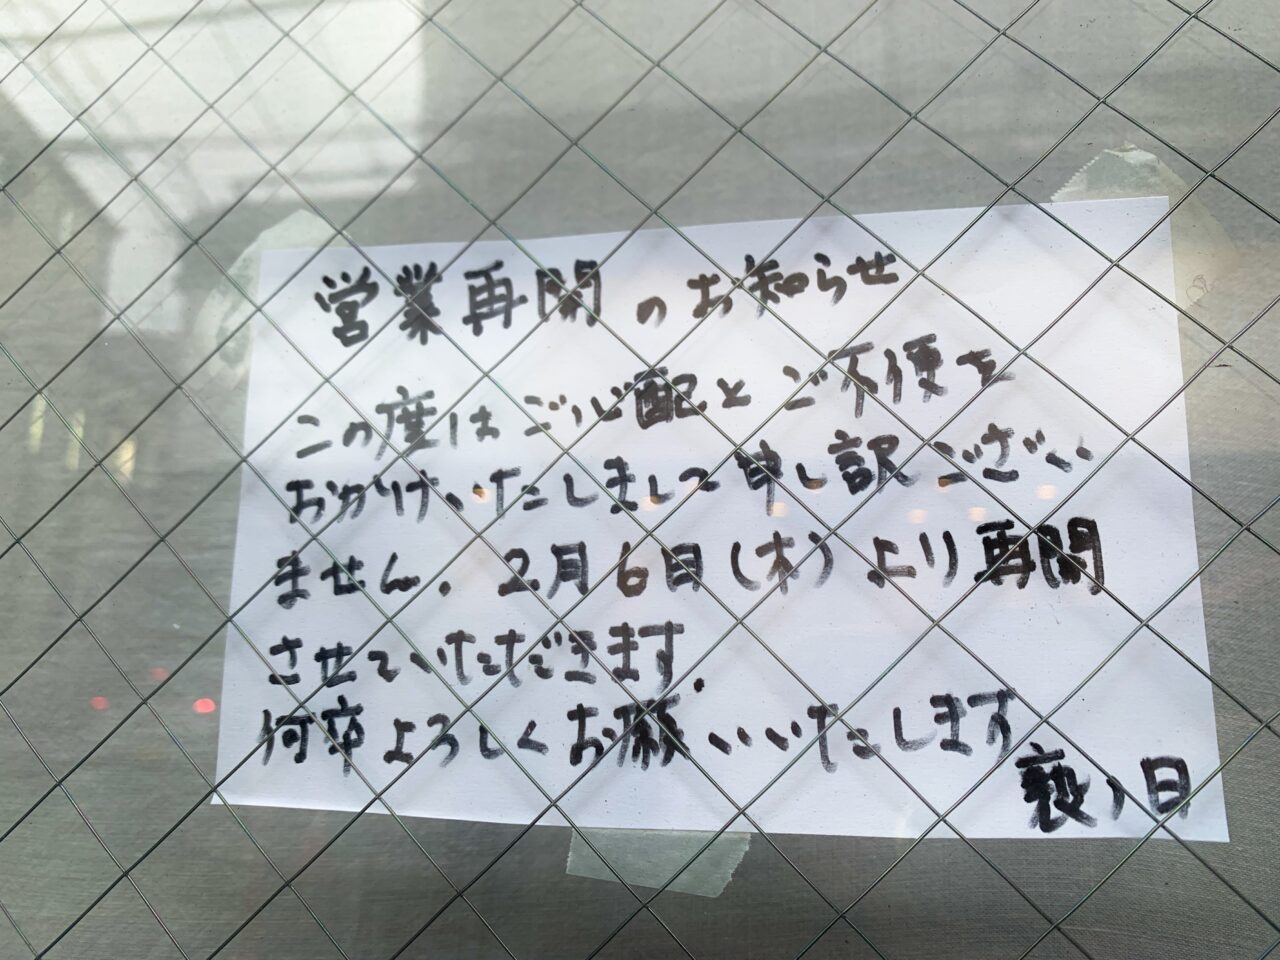 営業再開のお知らせ
この度はご心配とご不便を
おかけいたしまして申し訳ござい
ません。2月6日(木)より再開
させていただきます。
何卒よろしくお願いいたします
褻ノ日